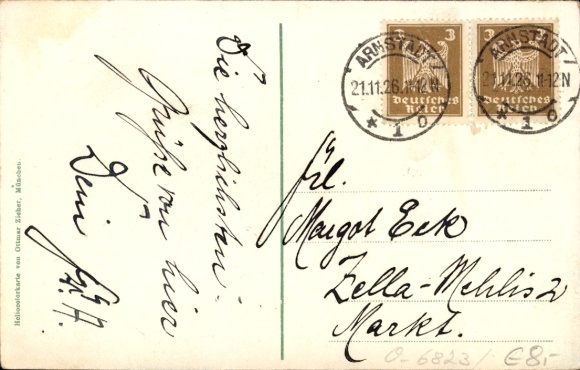 Die herzlichsten
Grüße von hier
Dein
Heliocolorkarte von Ottmar Zieher, München.
3 3
Deutsches Reich
Deutsches Reich
ARNSTADT
21.11.26.11-12N
* 1 o
ARNSTADT
21.11.26.11-12N
* 1 o
Frl.
Margot Eck
Zella-Mehlis 2
Markt.
0-6823/ €8,-